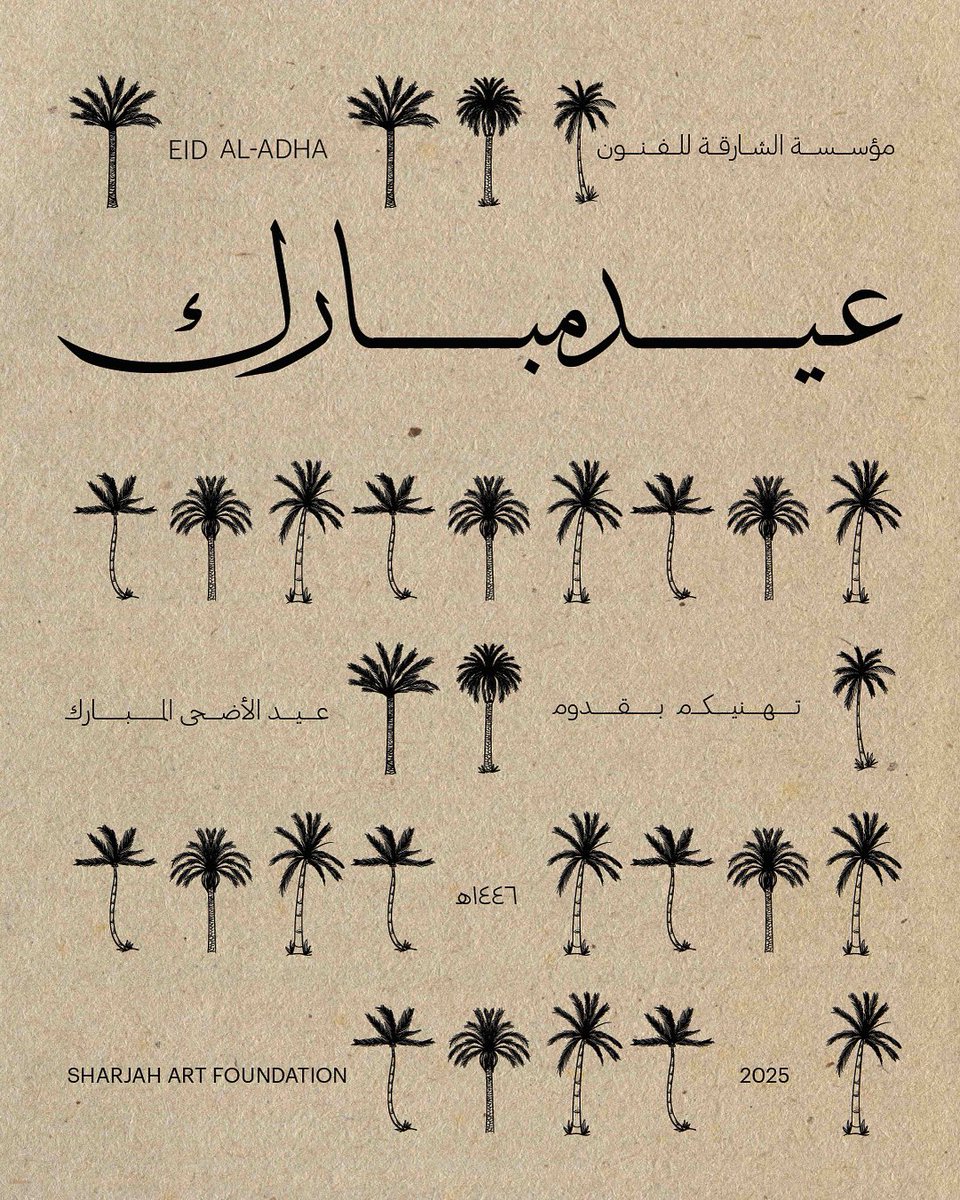 EID AL-ADHA
مؤسسة الشارقة للفنون
عيد مبارك
تهنيكم بقدوم
عيد الأضحى المبارك
١٤٤٦هـ
SHARJAH ART FOUNDATION
2025